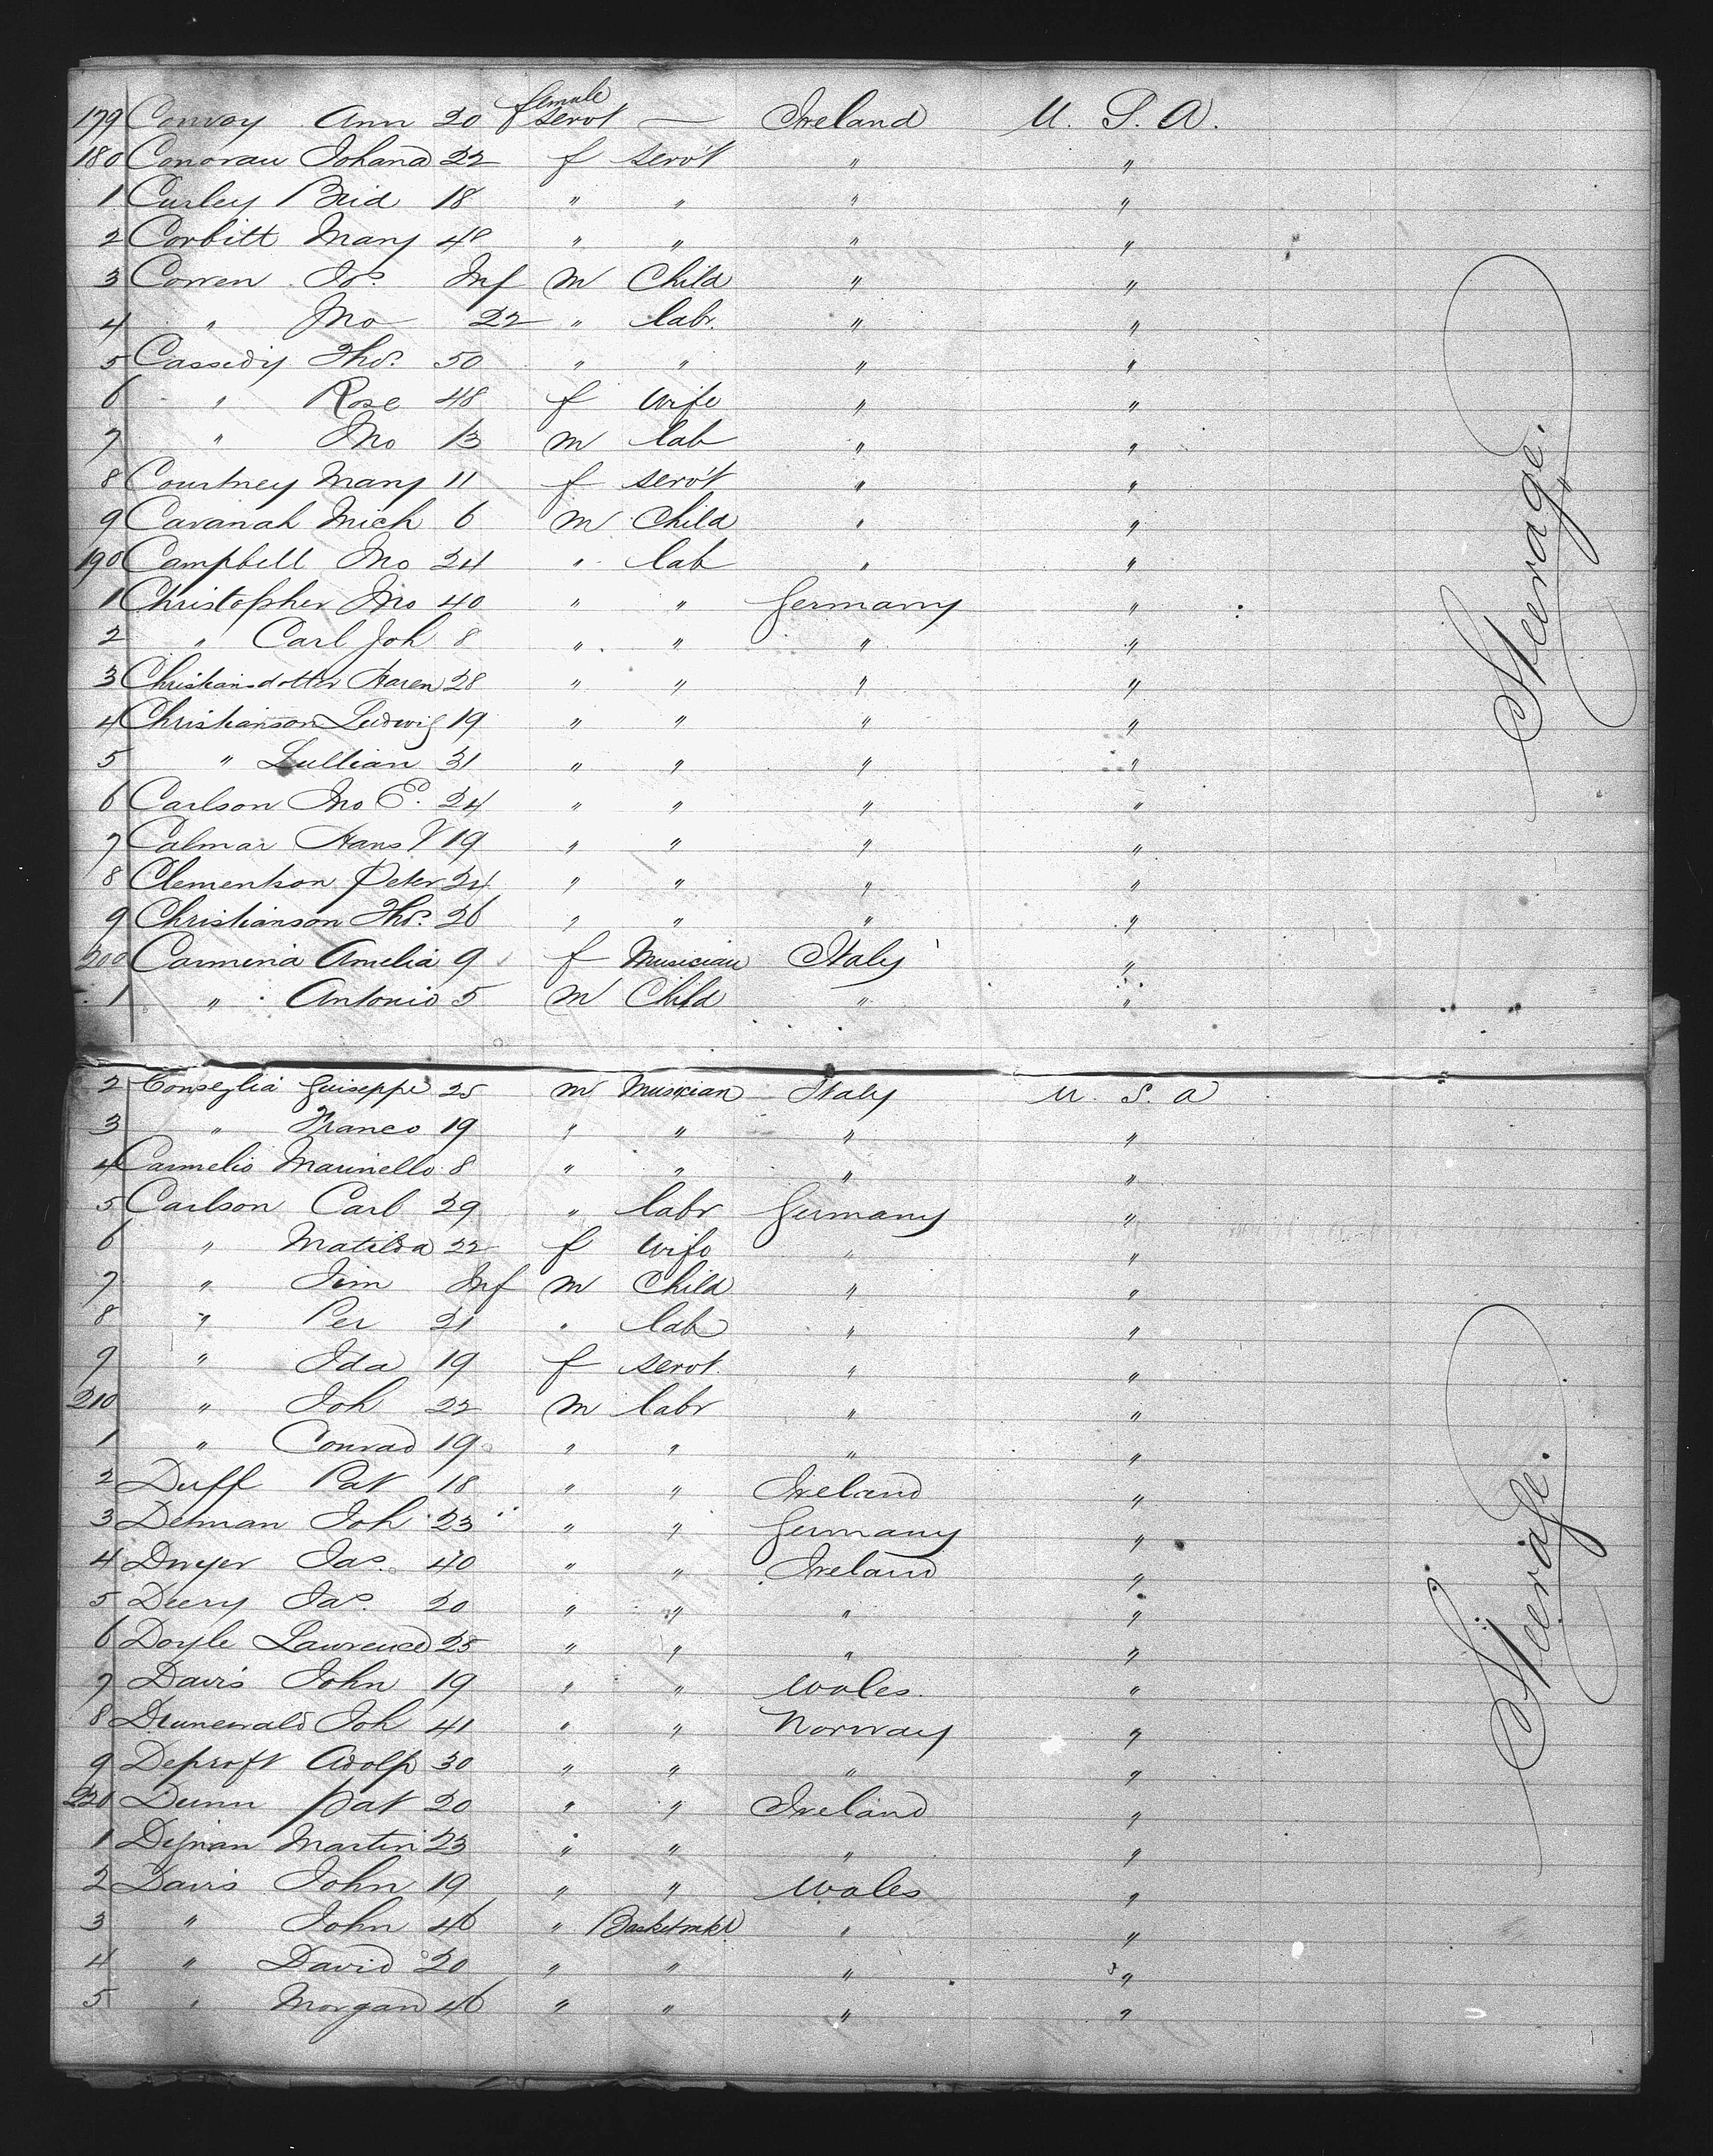 179 Convoy Ann 20 f female servt — Ireland U. S. A.
180 Conovau Johana 22 f serv't " "
1 Curley Brid 18 " " " "
2 Corbitt Mary 48 " " " "
3 Cowen Jos. Inf m Child " "
4 " Jno 22 " labr. " "
5 Cassidy Thos. 50 " " " "
6 " Rose 48 f wife " "
7 " Jno 13 m lab " "
8 Courtney Mary 11 f serv't " "
9 Cavanah Mich 6 m Child " "
190 Campbell Jno 24 " lab " "
1 Christopher Jno 40 " " Germany "
2 " Carl Joh 8 " " " "
3 Christiansdotter Karen 28 " " " "
4 Christianson Ludwig 19 " " " "
5 " Lullian 31 " " " "
6 Carlson Jno E. 24 " " " "
7 Calmar Hans V 19 " " " "
8 Clementson Peter 24 " " " "
9 Christianson Thos. 26 " " " "
200 Carmena Amelia 9 f Musician Italy "
1 " Antonio 5 m Child " "
Steerage.
2 Conseglia Guiseppe 25 m Musician Italy U. S. A
3 " Franco 19 " " " "
4 Carmelio Marinello 8 " " " "
5 Carlson Carl 29 " labr Germany "
6 " Matilda 22 f wife " "
7 " Jim Inf m Child " "
8 " Per 21 " lab " "
9 " Ida 19 f servt. " "
210 " Joh 22 m labr " "
1 " Conrad 19 " " " "
2 Duff Pat 18 " " Ireland "
3 Detman Joh 23 " " Germany "
4 Dwyer Jas. 40 " " Ireland "
5 Deery Jas. 20 " " " "
6 Doyle Lawrence 25 " " " "
7 Davis John 19 " " Wales. "
8 Drunewald Joh 41 " " Norway "
9 Deproft Adolp 30 " " " "
220 Dunn Pat 20 " " Ireland "
1 Dignan Martin 23 " " " "
2 Davis John 19 " " Wales "
3 " John 46 " Basketmkr " "
4 " David 20 " " " "
5 " Morgan 46 " " " "
Steerage.